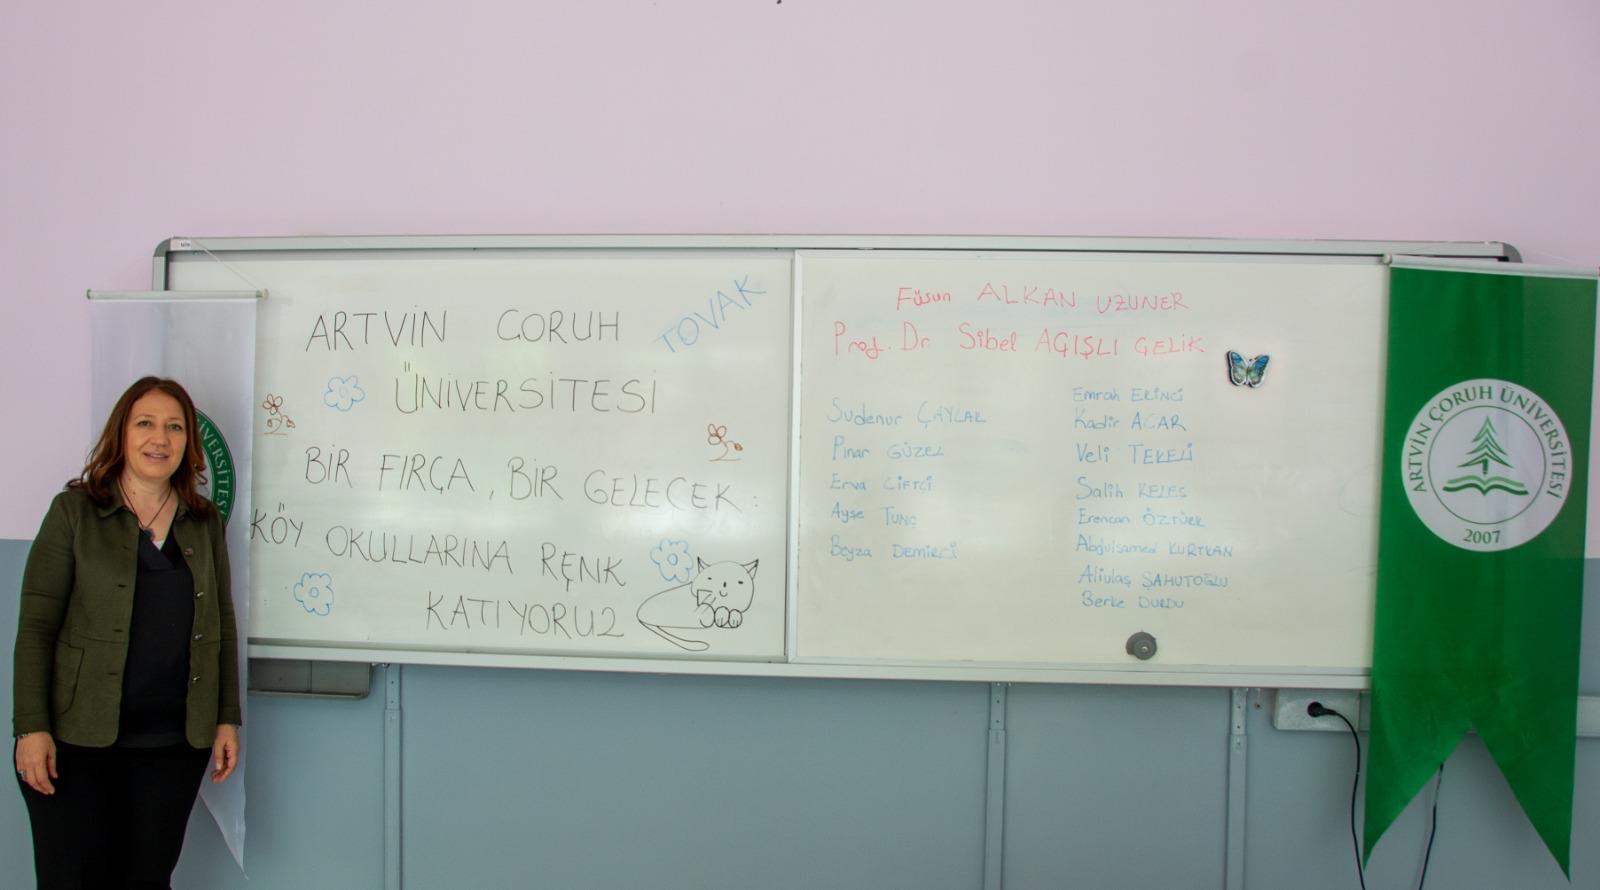 ARTVİN ÇORUH
TOVAK
ÜNİVERSİTESİ
BİR FIRÇA, BİR GELECEK:
KÖY OKULLARINA RENK
KATIYORUZ
Füsun ALKAN UZUNER
Prof. Dr Sibel AGIŞLI GELİK
Sudenur ÇAYLAK
Pınar GÜZEL
Erva CİFTCİ
Ayşe TUNÇ
Beyza DEMİRCİ
Emrah EKİNCİ
Kadir ACAR
Veli TEKELİ
Salih KELEŞ
Erencan ÖZTÜRK
Abdulsamed KURTKAN
Aliulaş ŞAHUTOĞLU
Berke DURDU
ARTVİN ÇORUH ÜNİVERSİTESİ
2007